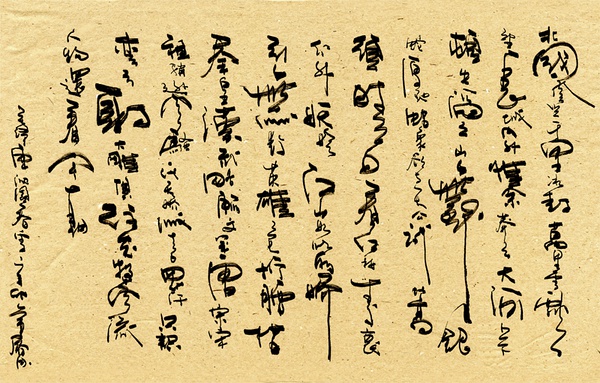 北国風光千里冰封萬里雪飘
望長城内外惟餘莽莽大河上下
頓失滔滔山舞銀
蛇原馳蠟象欲與天公試比高
須晴日看红装素裹
分外妖娆江山如此多嬌
引無數英雄競折腰惜
秦皇漢武略輸文采唐宗宋
祖稍遜風騷一代天驕成吉思汗只識
弯弓射大雕俱往矣數風流
人物還看今朝
毛澤東沁園春雪